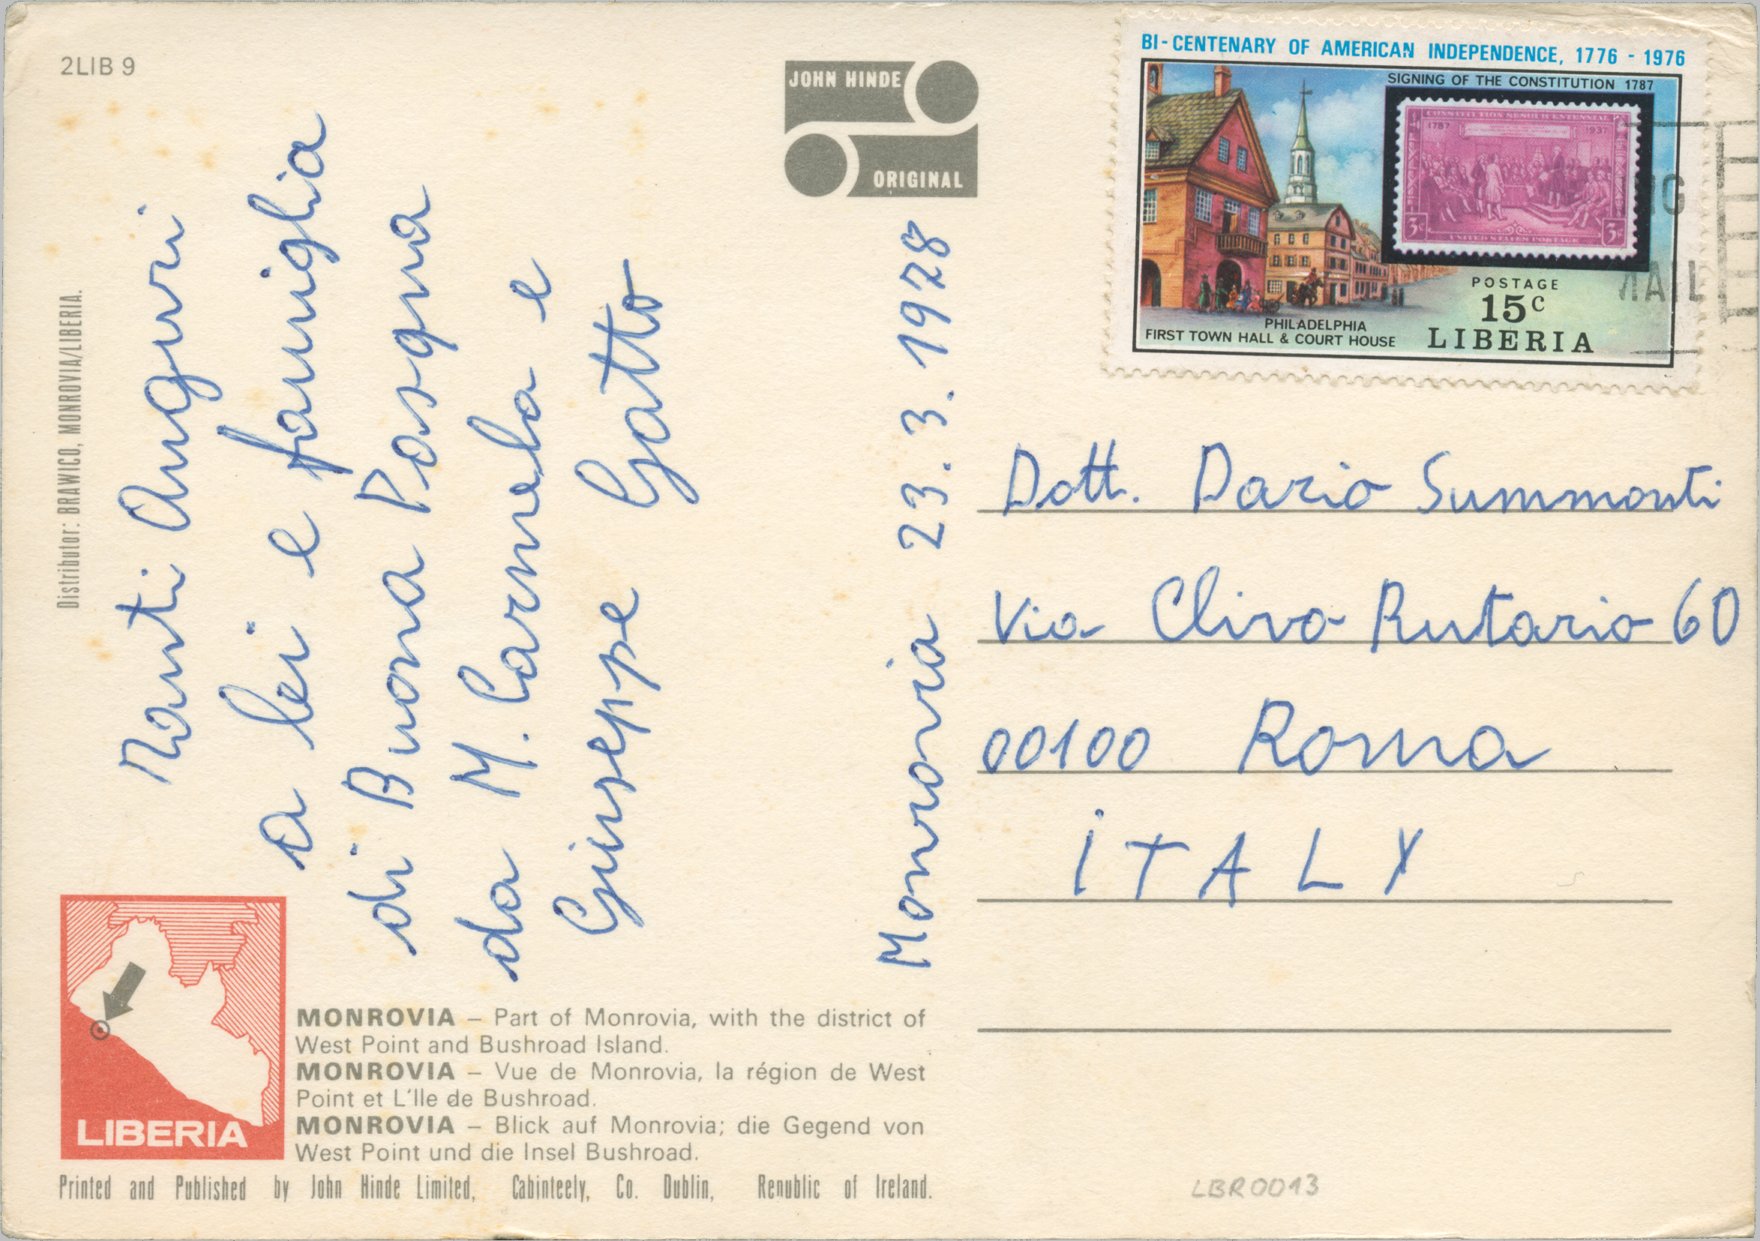 2LIB 9
JOHN HINDE
ORIGINAL
Distributor: BRAWICO, MONROVIA/LIBERIA.
Tanti Auguri
a lei e famiglia
di Buona Pasqua
da M. Carmela e
Giuseppe Gatto
Monrovia 23.3.1978
BI-CENTENARY OF AMERICAN INDEPENDENCE, 1776 - 1976
SIGNING OF THE CONSTITUTION 1787
CONSTITUTION SESQUICENTENNIAL
1787 1937
3c 3c
UNITED STATES POSTAGE
POSTAGE
15c
LIBERIA
PHILADELPHIA
FIRST TOWN HALL & COURT HOUSE
Dott. Dario Summonti
Via Clivo Rutario 60
00100 Roma
ITALY
LIBERIA
MONROVIA – Part of Monrovia, with the district of
West Point and Bushroad Island.
MONROVIA – Vue de Monrovia, la région de West
Point et L'Ile de Bushroad.
MONROVIA – Blick auf Monrovia; die Gegend von
West Point und die Insel Bushroad.
Printed and Published by John Hinde Limited, Cabinteely, Co. Dublin, Republic of Ireland.
LBR0013